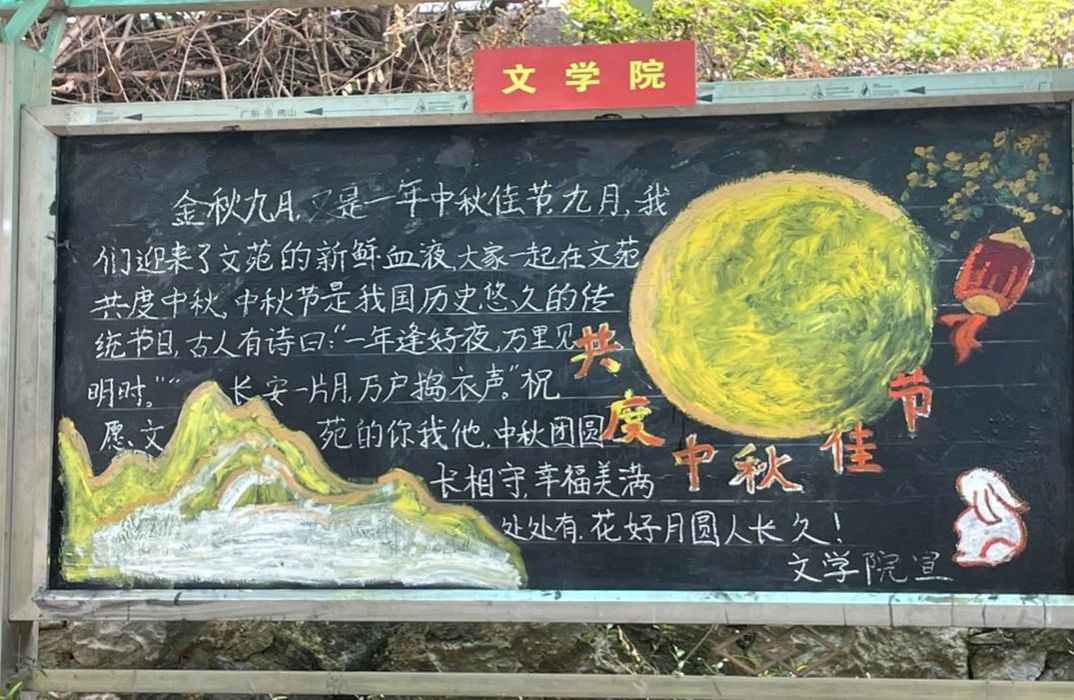 文学院
金秋九月,又是一年中秋佳节,九月,我
们迎来了文苑的新鲜血液,大家一起在文苑
共度中秋,中秋节是我国历史悠久的传
统节日,古人有诗曰:“一年逢好夜,万里见
明时。”“长安一片月,万户捣衣声。”祝
愿、文苑的你我他,中秋团圆
长相守,幸福美满
处处有,花好月圆人长久!
文学院宣
共度中秋佳节